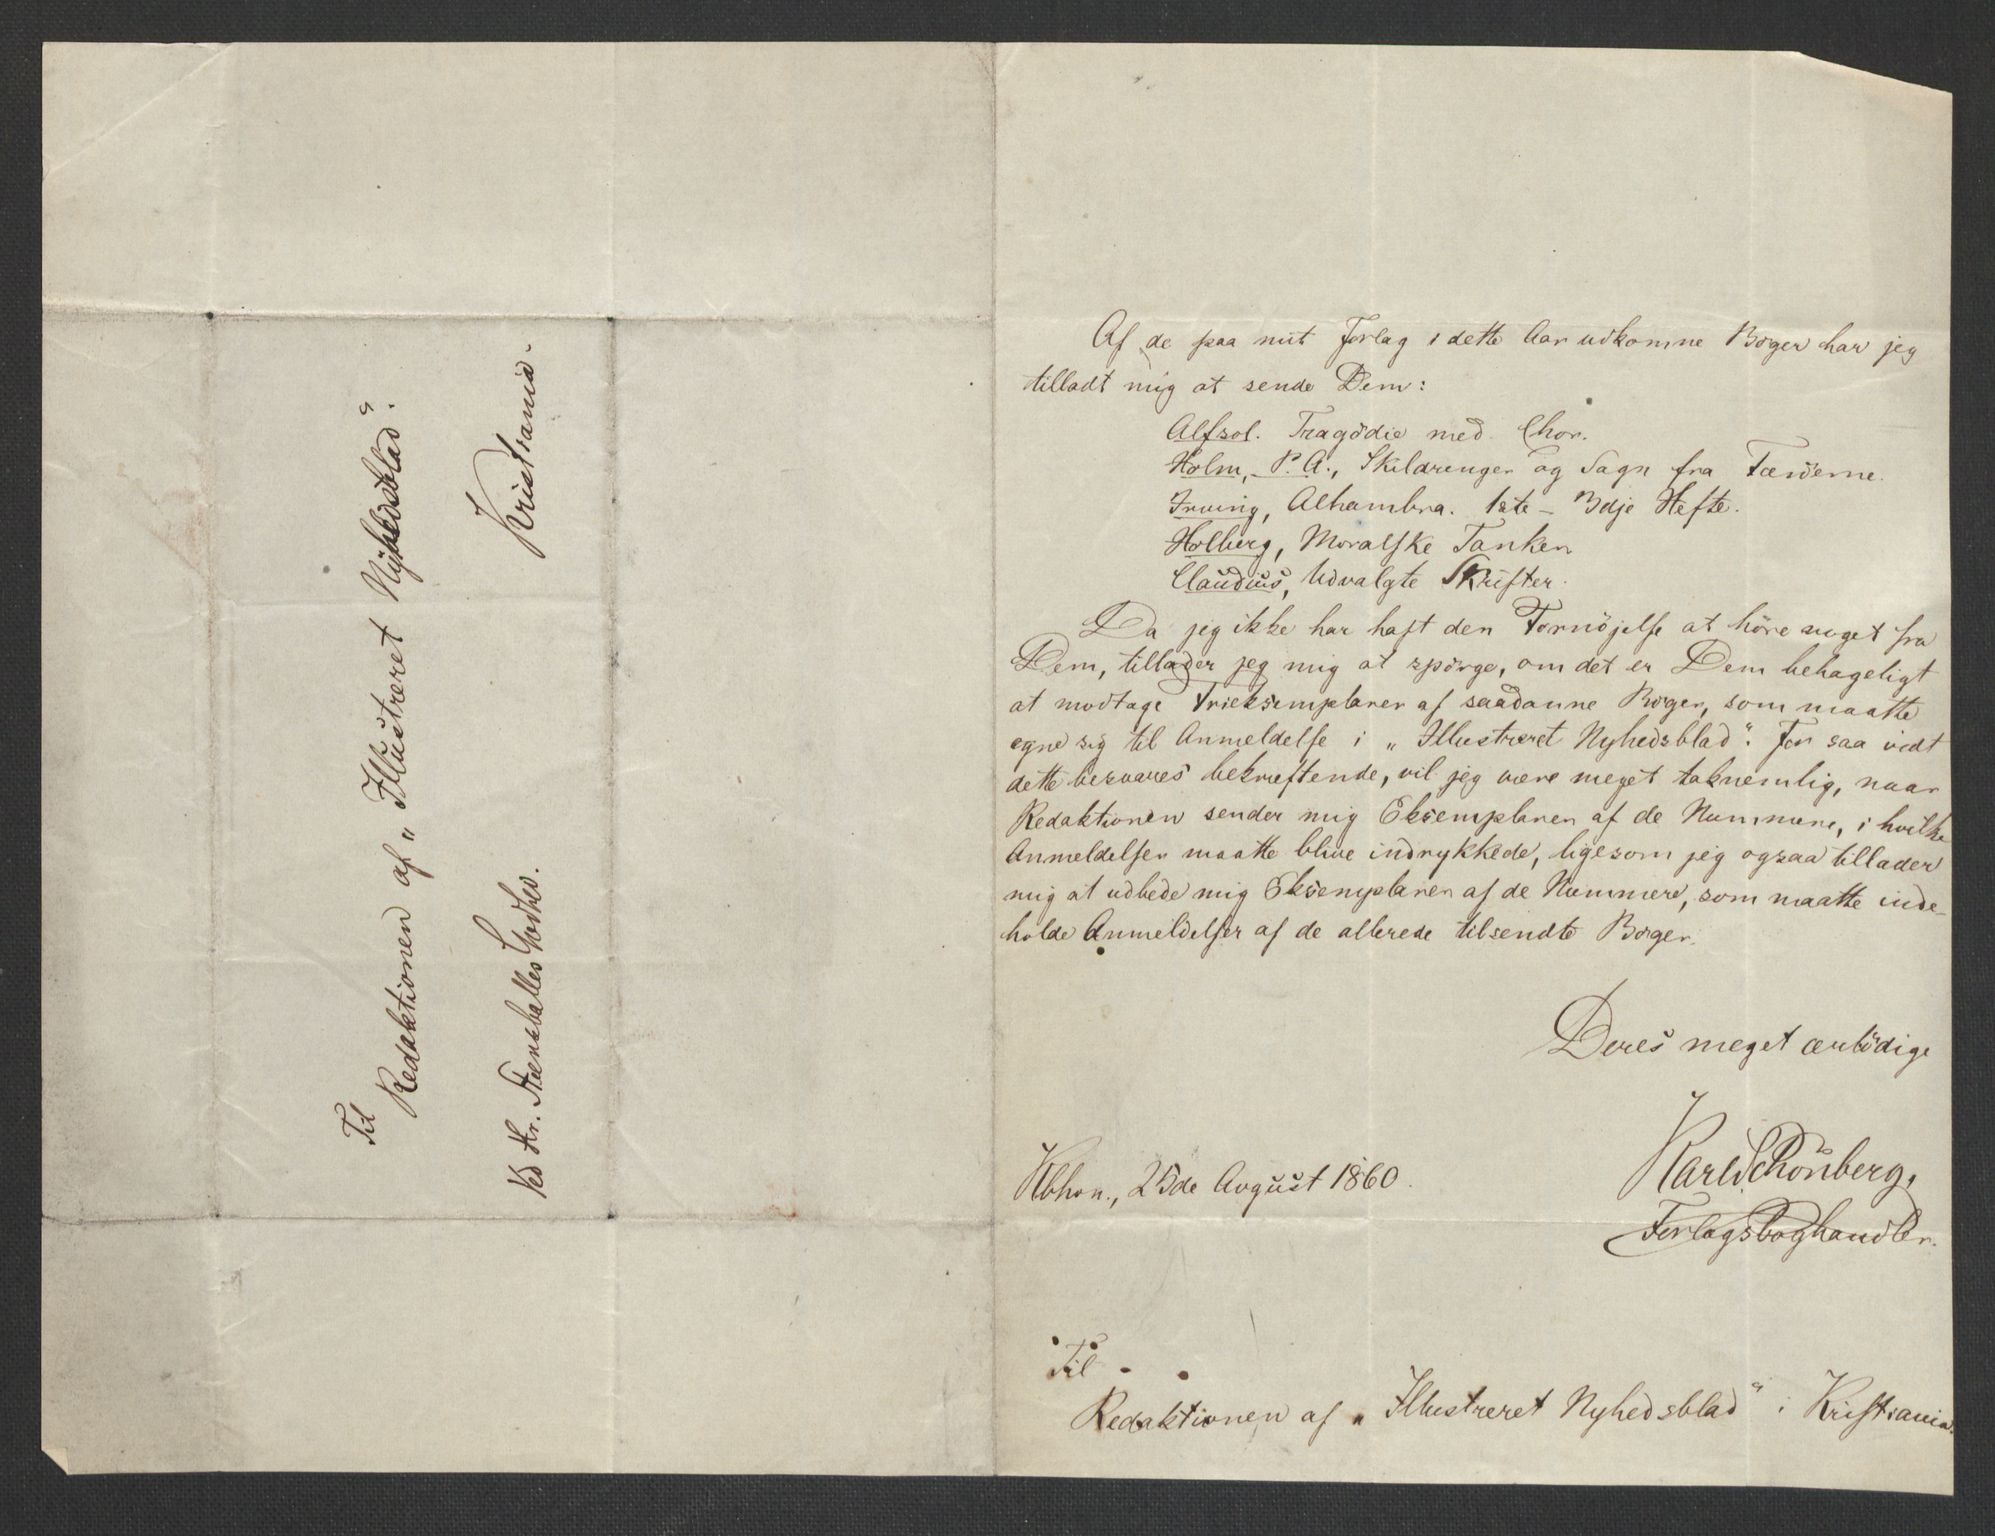 Til
Redaktionen af „Illustreret Nyhedsblad“.
Kristiania.
Ved Hr. Steensballes Godhed.
Af de paa mit Forlag i dette Aar udkomne Böger har jeg
tilladt mig at sende Dem:
Alfsol. Tragödie med Chor.
Holm, P. A., Skildringer og Sagn fra Færöerne.
Irving, Alhambra. 1ste – 3dje Hefte.
Holberg, Moralske Tanker
Claudius, Udvalgte Skrifter.
Da jeg ikke har haft den Fornöjelse at höre noget fra
Dem, tillader jeg mig at spörge, om det er Dem behageligt
at modtage Frieksemplarer af saadanne Böger, som maatte
egne sig til Anmeldelse i „Illustreret Nyhedsblad“. For saa vidt
dette besvares bekræftende, vil jeg være meget taknemlig, naar
Redaktionen sender mig Eksemplarer af de Nummere, i hvilke
Anmeldelser maatte blive indrykkede, ligesom jeg ogsaa tillader
mig at udbede mig Eksemplarer af de Nummere, som maatte inde-
holde Anmeldelser af de allerede tilsendte Böger.
Deres meget ærbödige
Karl Schönberg,
Forlagsboghandler.
Kbhvn., 25de Avgust 1860.
Til
Redaktionen af „Illustreret Nyhedsblad“ i Kristiania.